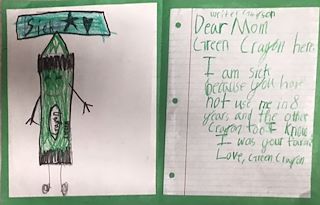 Crayon
writer
Dear Mom
Green Crayon here.
I am sick
because you have
not use me in 8
years and the other
Crayon too I know
I was your
Love, Green Crayon